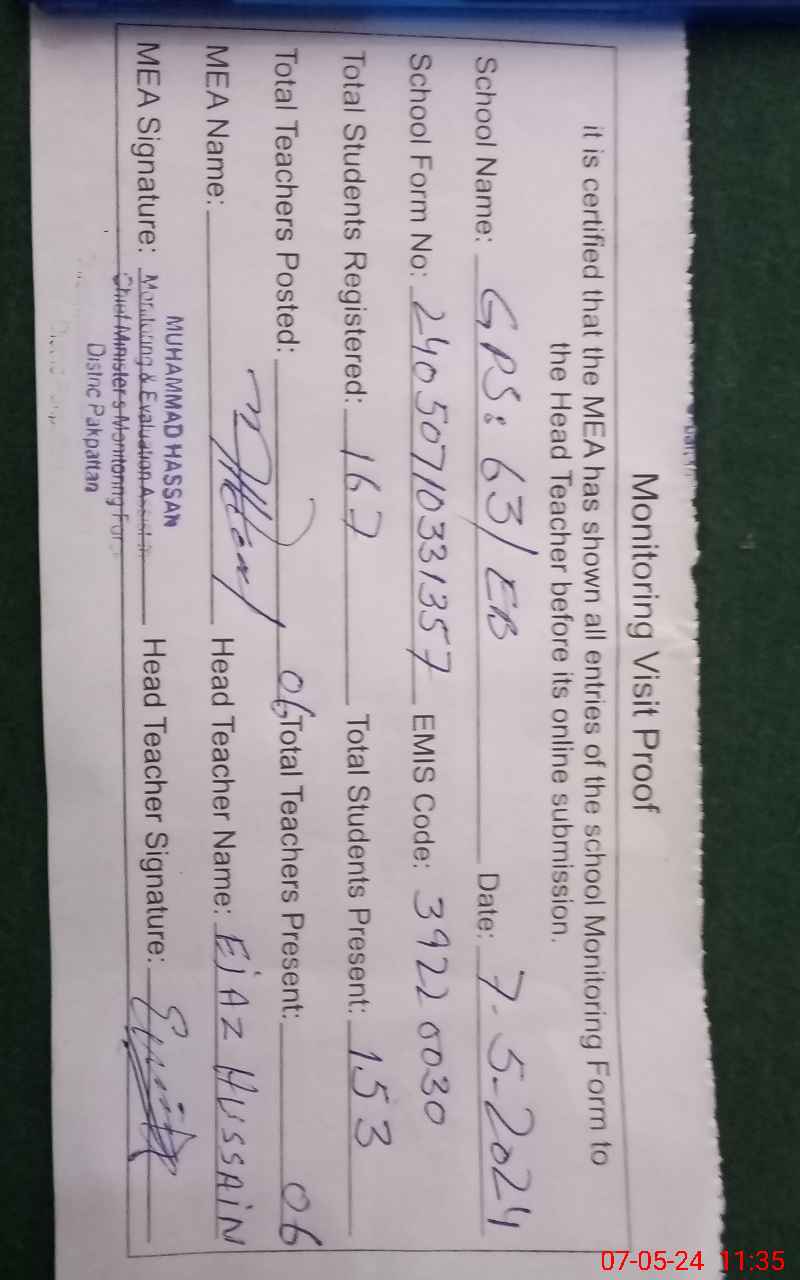 Monitoring Visit Proof
it is certified that the MEA has shown all entries of the school Monitoring Form to
the Head Teacher before its online submission.
School Name: GPS: 63/EB Date: 7-5-2024
School Form No: 24050710331357 EMIS Code: 39220030
Total Students Registered: 167 Total Students Present: 153
Total Teachers Posted: 06 Total Teachers Present: 06
MEA Name: Head Teacher Name: EJAZ HUSSAIN
MUHAMMAD HASSAN
MEA Signature: Monitoring & Evaluation Head Teacher Signature:
Chief Minister's Monitoring
Distric Pakpattan
07-05-24 11:35